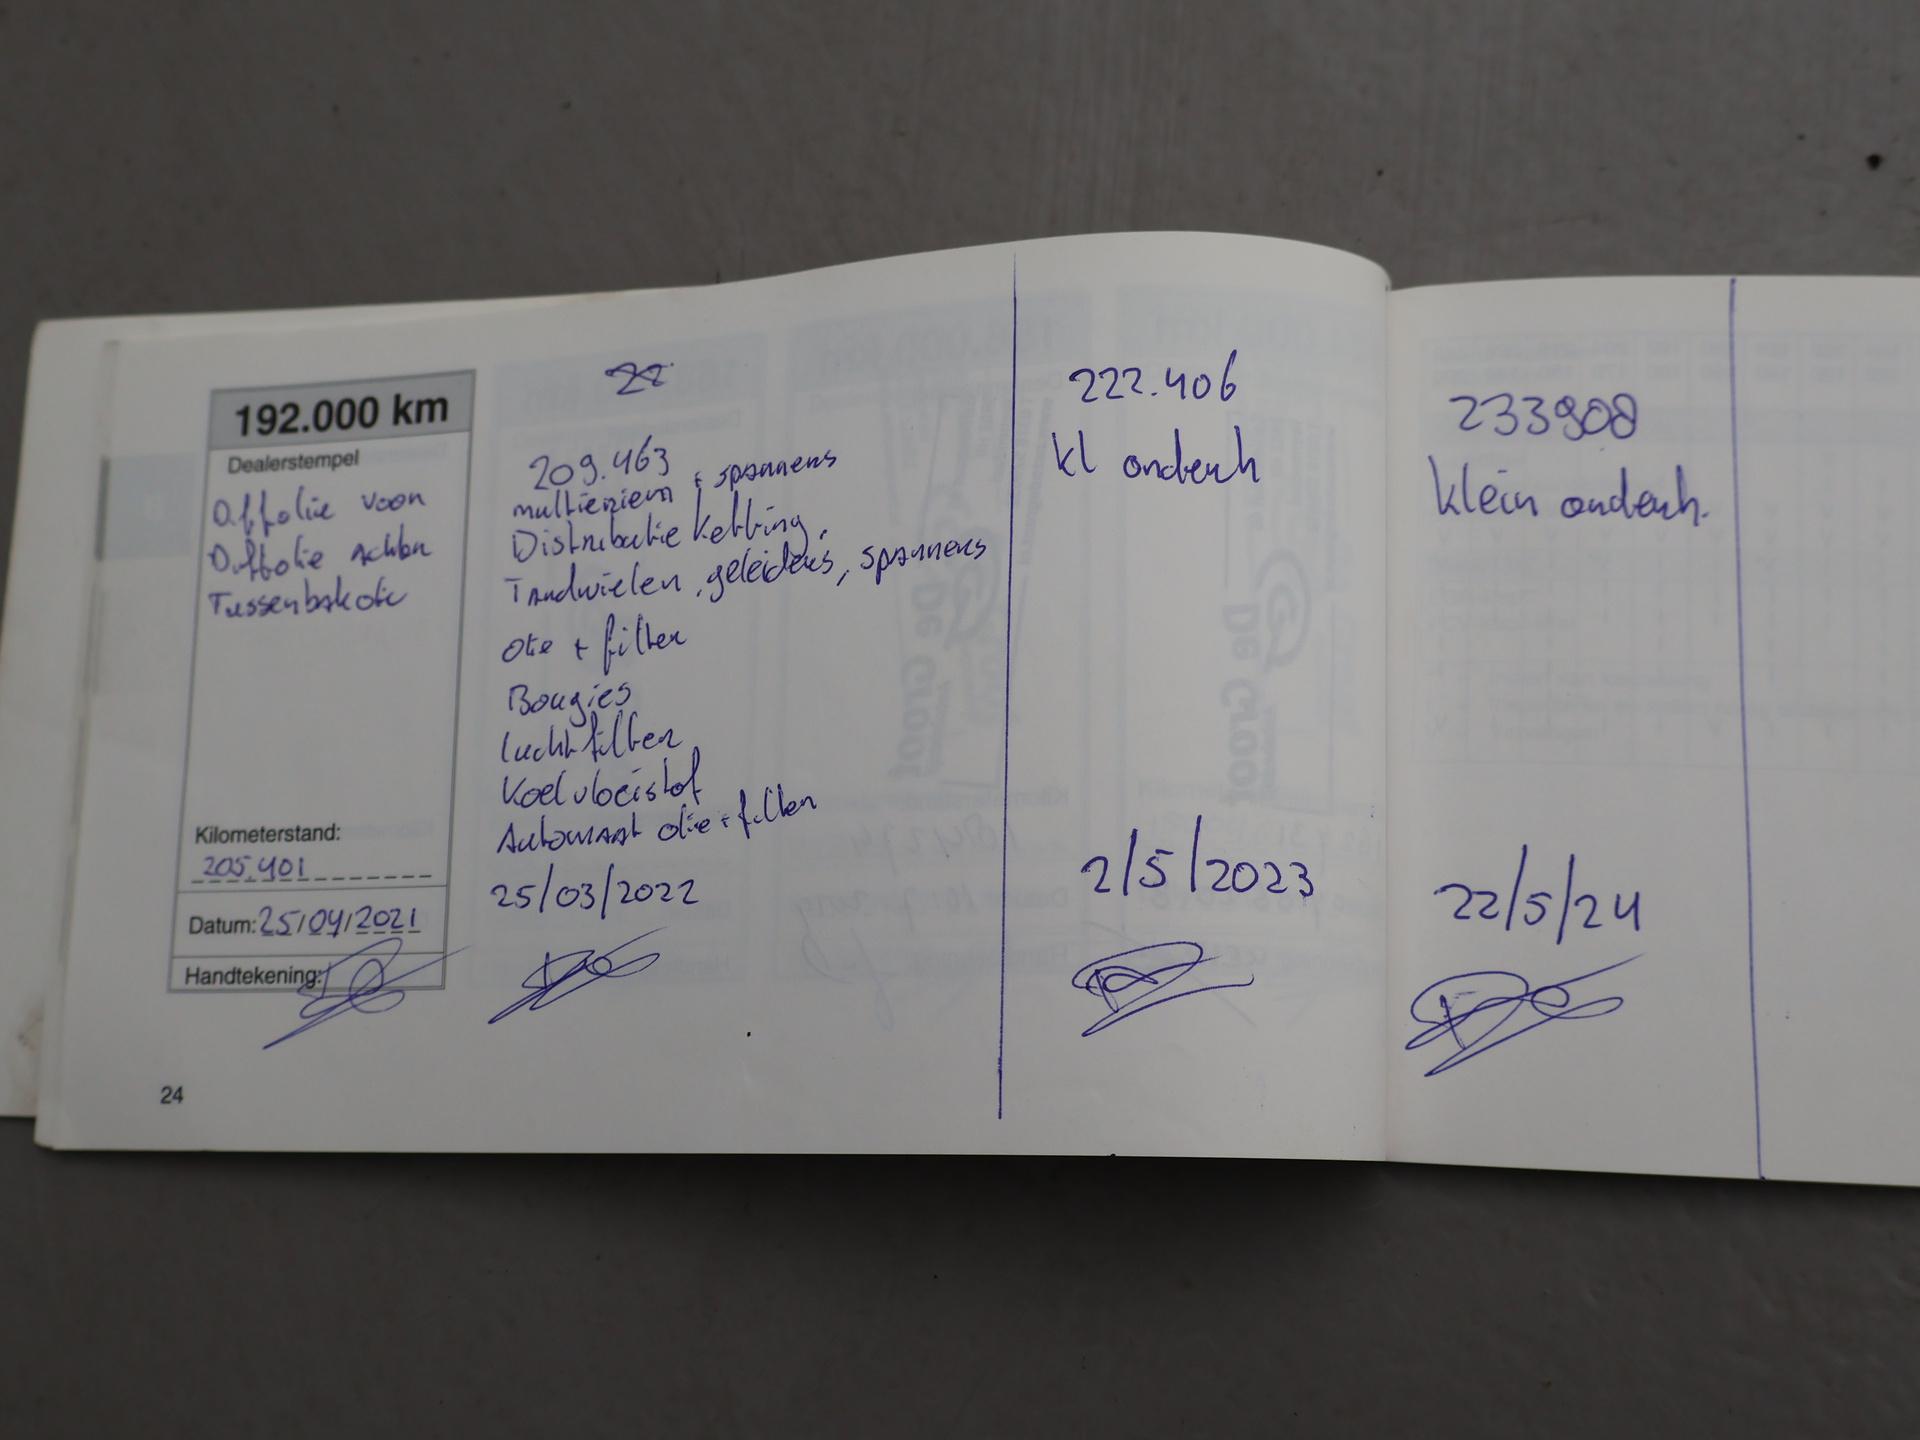 192.000 km
Dealerstempel
Diffolie voor
Diffolie achter
Tussenbakolie
Kilometerstand:
205.401
Datum: 25/04/2021
Handtekening:
24
22
209.463
multieriem + spanners
Distributie ketting,
Tandwielen, geleiders, spanners
olie + filter
Bougies
luchtfilter
Koelvloeistof
Automaat olie + filter
25/03/2022
222.406
kl onderh
2/5/2023
233908
klein onderh.
22/5/24
De Groot
De Groot